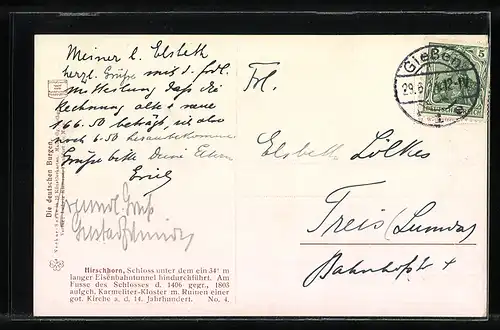 Meiner l. Elsbeth
herzl. Grüße mit d. frdl.
Mitteilung daß die
Rechnung alte & neue
166.50 beträgt, sie also
noch 6.50 herausbekommen
Grüße bitte Deine Eltern
Erich
Frl.
Elsbeth Lölkes
Treis (Lumda)
Bahnhofstr.
Gießen
29.6
5
Die deutschen Burgen.
Hirschhorn, Schloss unter dem ein 341 m
langer Eisenbahntunnel hindurchführt. Am
Fusse des Schlosses d. 1406 gegr., 1803
aufgeh. Karmeliter-Kloster m. Ruinen einer
got. Kirche a. d. 14. Jahrhundert. No. 4.